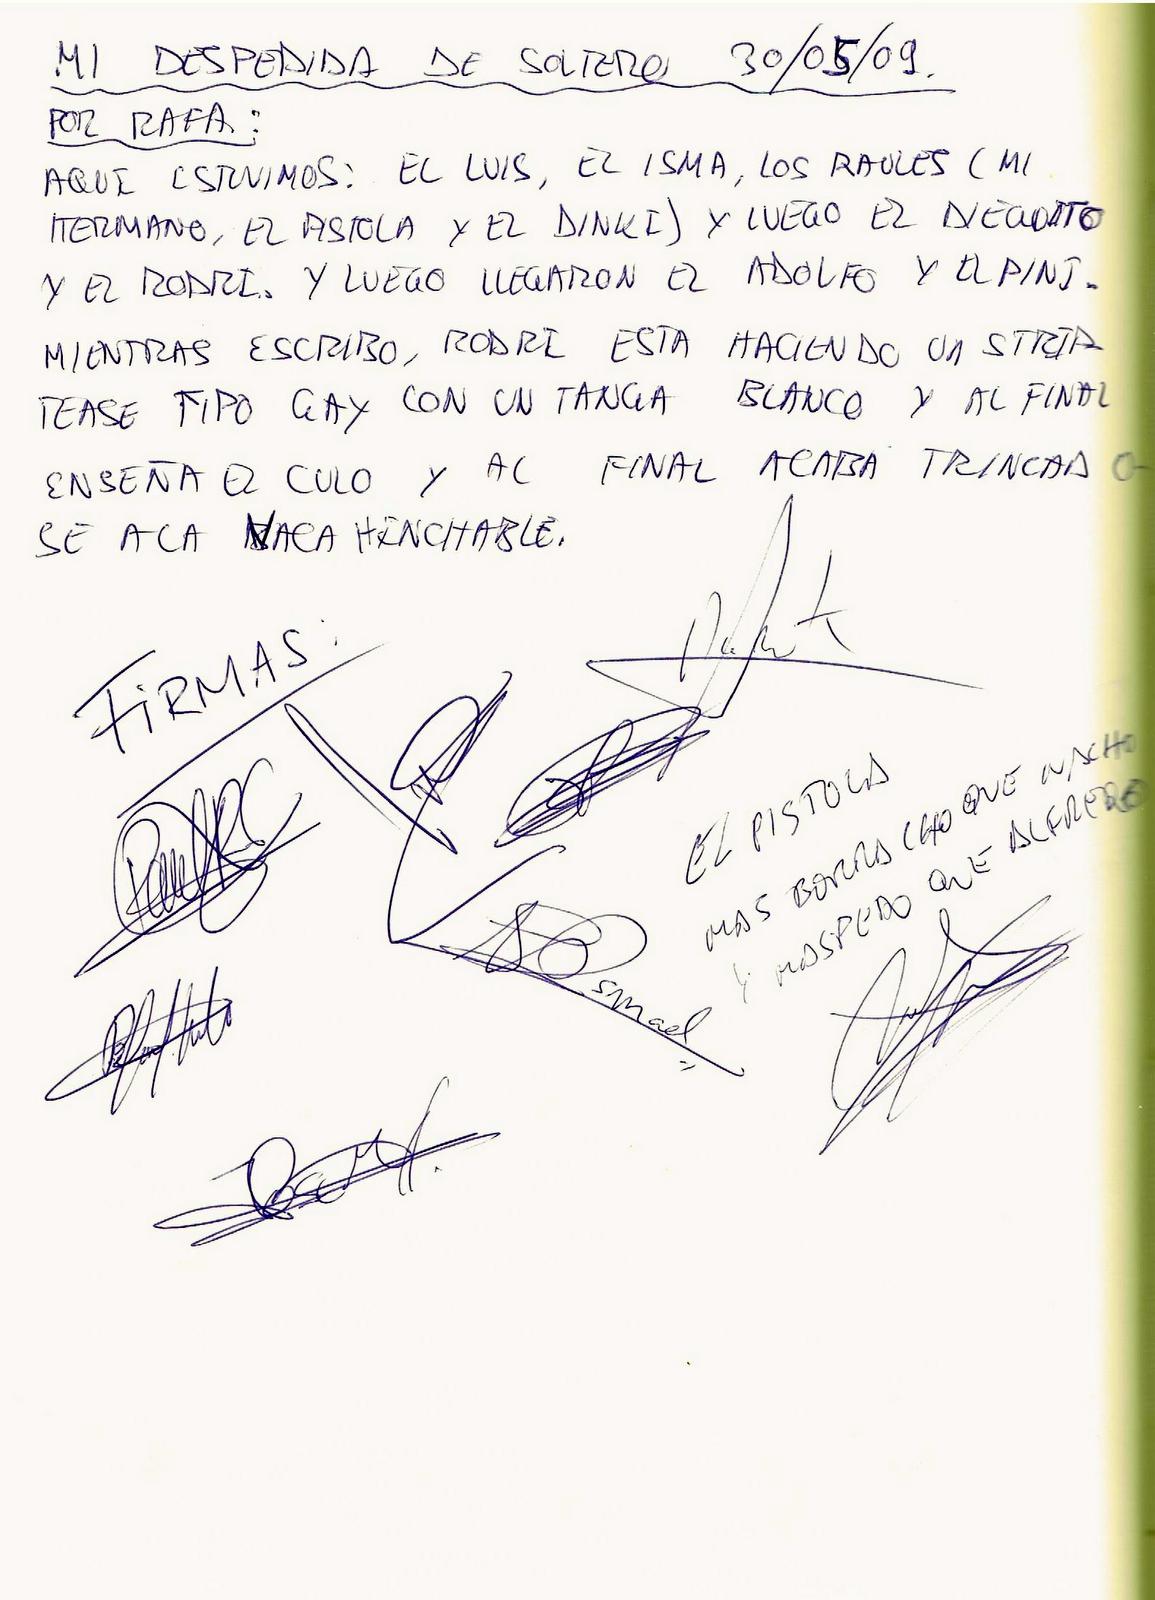 MI DESPEDIDA DE SOLTERO 30/05/09.
POR RAFA:
AQUI ESTUVIMOS: EL LUIS, EL ISMA, LOS RAULES (MI
HERMANO, EL PISTOLA Y EL DINKI) Y LUEGO EL DIEGUITO
Y EL RODRI. Y LUEGO LLEGARON EL ADOLFO Y EL PINI.
MIENTRAS ESCRIBO, RODRI ESTA HACIENDO UN STRIP
TEASE TIPO GAY CON UN TANGA BLANCO Y AL FINAL
ENSEÑA EL CULO Y AL FINAL ACABA TRINCADO
SE A LA VACA HINCHABLE.
FIRMAS:
EL PISTOLA
MAS BORRACHO QUE NACHO
Y MAS PEDO QUE ALFREDO
Ismael